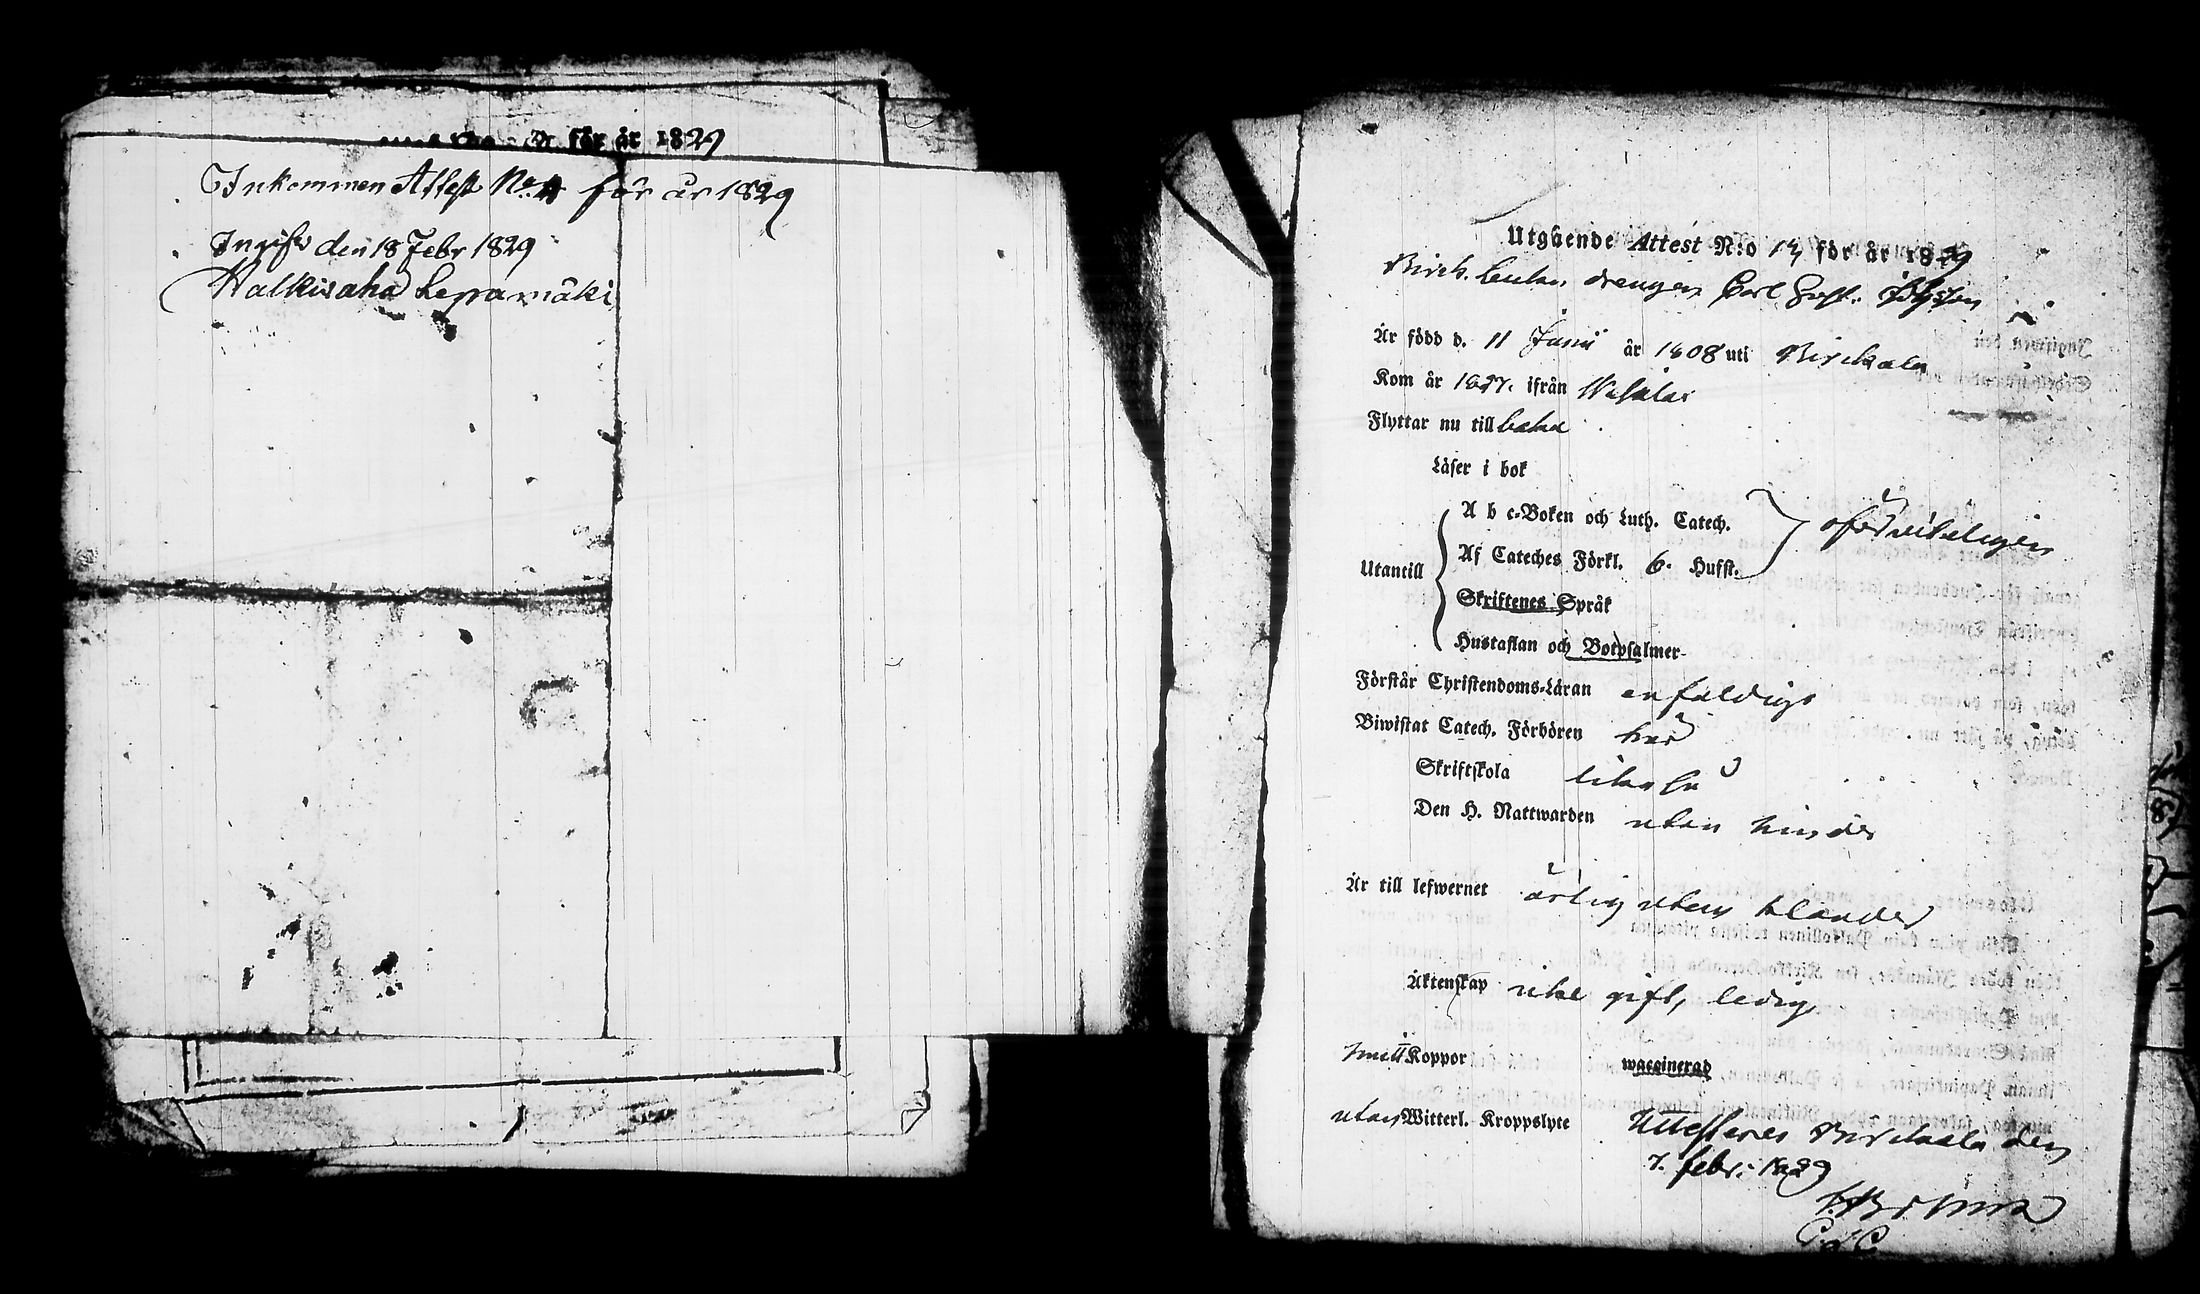 för år 1829
Inkommen Attest No 4 för år 1829
Ingifv den 18 Febr 1829
Walkisaha Leppamäki
Utgående Attest N:o 14 för år 1829
drengen Carl Gust.
Är född d. 11 Junii år 1808 uti Birckala
Kom år 1827. ifrån Messuby
Flyttar nu tillbaka
Läser i bok
A b c-Boken och Luth. Catech.
oförviteligen
Af Cateches Förkl. 6. Hufst.
Utantill
Skriftenes Språk
Hustaflan och Botpsalmer
Förstår Christendoms-Läran enfaldigt
Biwistat Catech. Förhören här
Skriftskola likaså
Den H. Nattwarden utan hinder
Är till lefwernet ärlig utan klander
Äktenskap icke gift, ledig
haft Koppor waccinerad
utan Witterl. Kroppslyte Attesteres Birckala den
7. febr: 1829